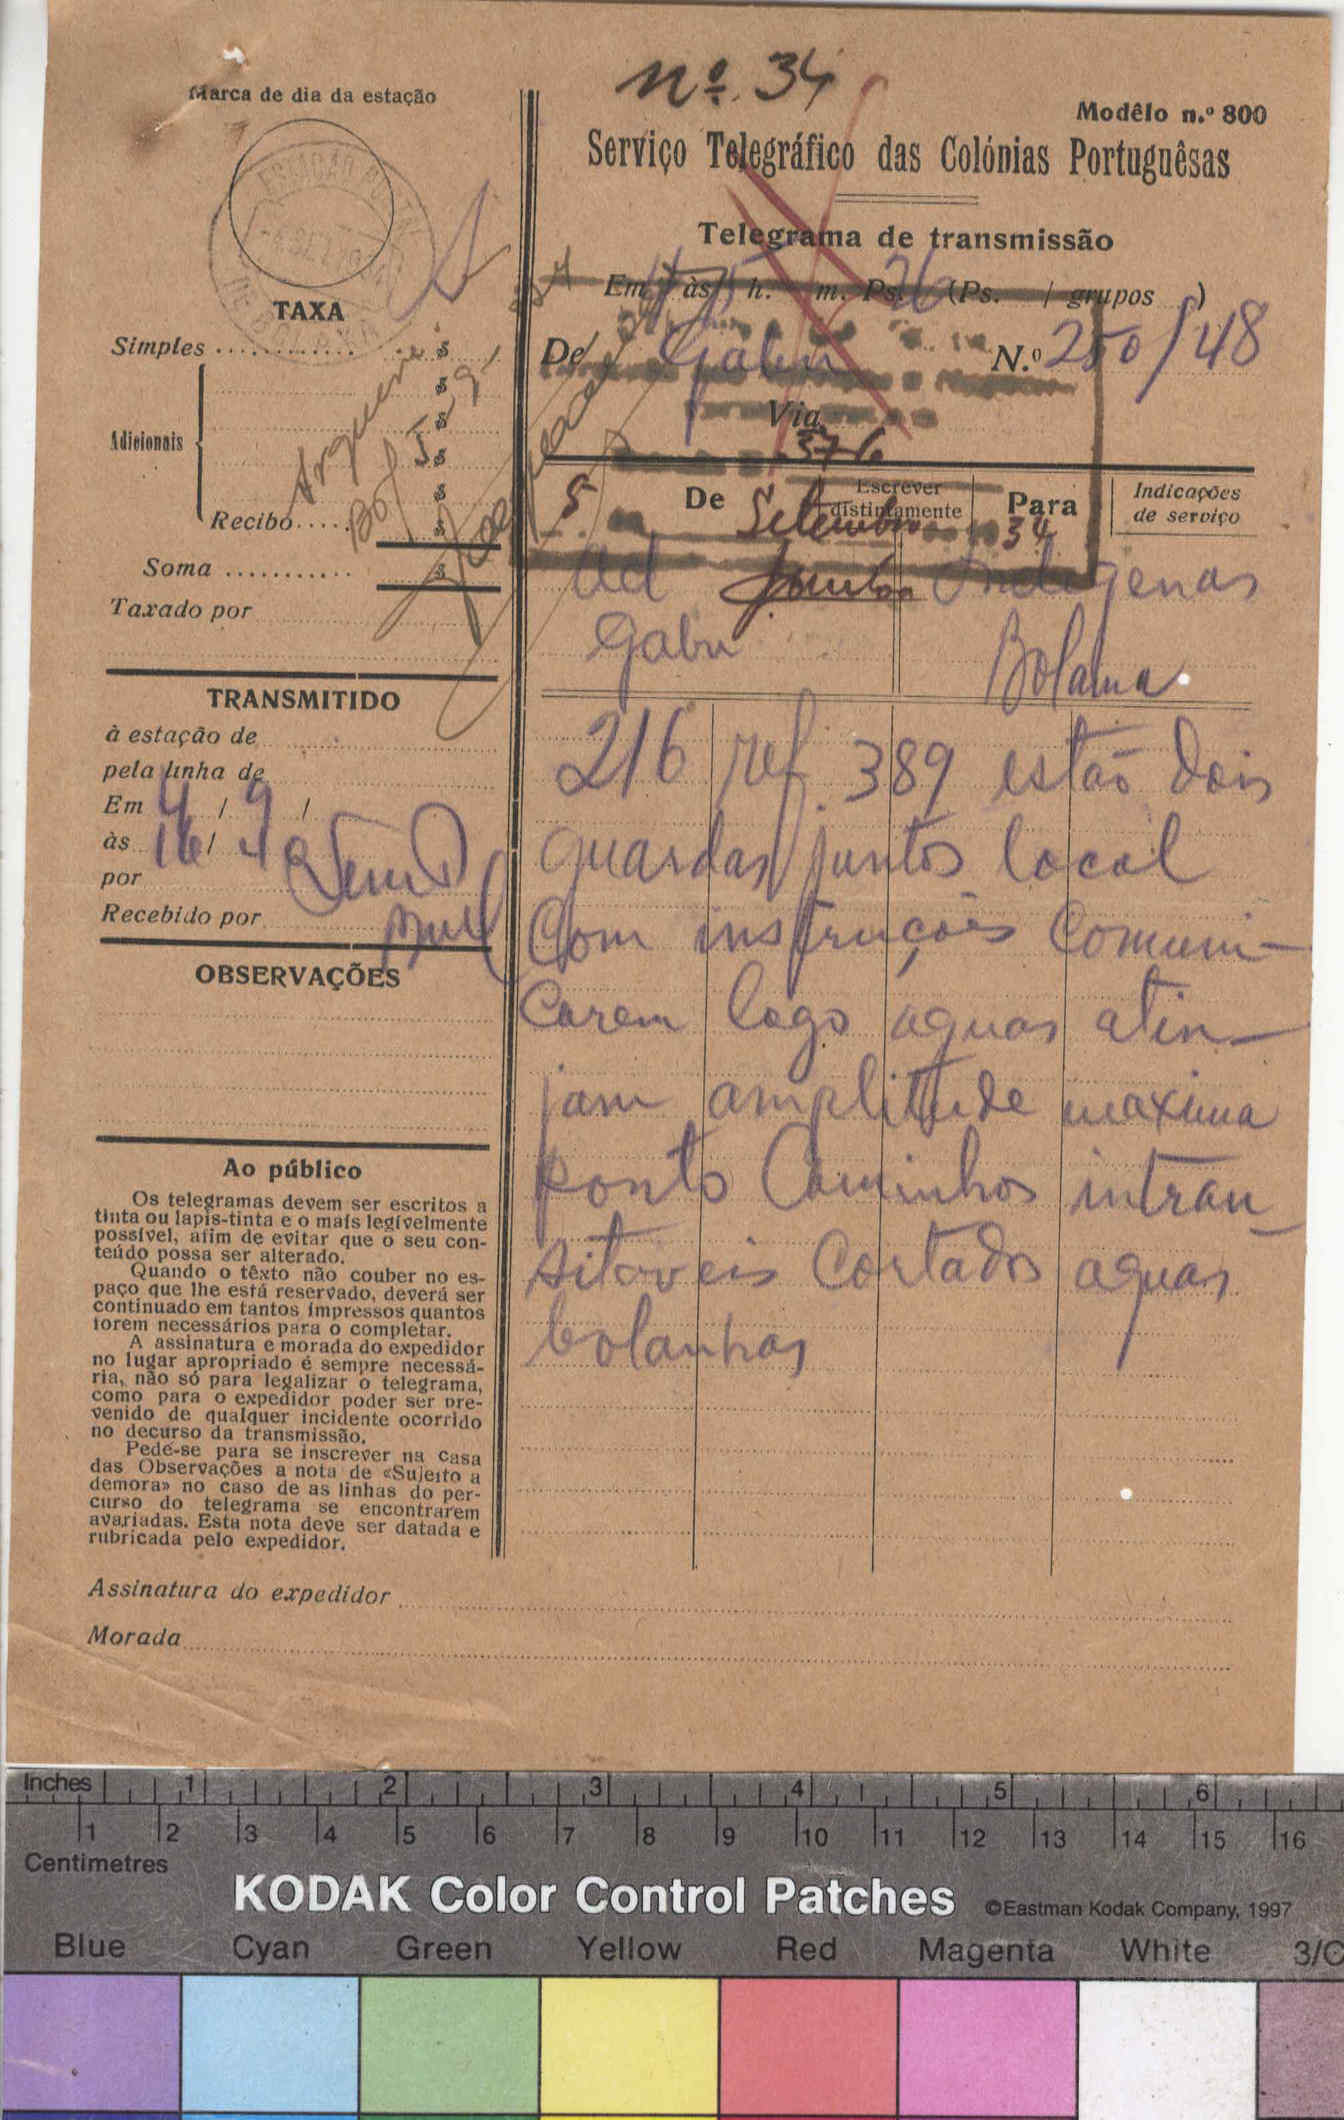 nº. 34
Marca de dia da estação
Modêlo n.º 800
Serviço Telegráfico das Colónias Portuguêsas
Telegrama de transmissão
Em às h. m. Ps. 26 (Ps. / grupos )
De Gabu N.º 250/48
Via
376
5 De Setembro 34
Escrever distintamente
Para
Indicações
de serviço
Ad Indigenas
Gabu Bolama
216 ref. 389 estão dois
guardas juntos local
Com instruções comuni-
carem logo aguas atin-
jam amplitude maxima
ponto Caminhos intran-
sitaveis Cortados aguas
bolanhas
TAXA
Simples ............ $
$
$
Adicionais $
$
$
Recibo ..... $
Soma ........... $
Taxado por
Arquive
TRANSMITIDO
à estação de
pela linha de
Em 4 / 9 /
às 16 / 40
por
Recebido por
OBSERVAÇÕES
Ao público
Os telegramas devem ser escritos a
tinta ou lapis-tinta e o mais legivelmente
possível, afim de evitar que o seu con-
teúdo possa ser alterado.
Quando o têxto não couber no es-
paço que lhe está reservado, deverá ser
continuado em tantos impressos quantos
forem necessários para o completar.
A assinatura e morada do expedidor
no lugar apropriado é sempre necessá-
ria, não só para legalizar o telegrama,
como para o expedidor poder ser pre-
venido de qualquer incidente ocorrido
no decurso da transmissão.
Pede-se para se inscrever na casa
das Observações a nota de «Sujeito a
demora» no caso de as linhas do per-
curso do telegrama se encontrarem
avariadas. Esta nota deve ser datada e
rubricada pelo expedidor.
Assinatura do expedidor
Morada
Inches 1 2 3 4 5 6
1 2 3 4 5 6 7 8 9 10 11 12 13 14 15 16
Centimetres
KODAK Color Control Patches ©Eastman Kodak Company, 1997
Blue Cyan Green Yellow Red Magenta White